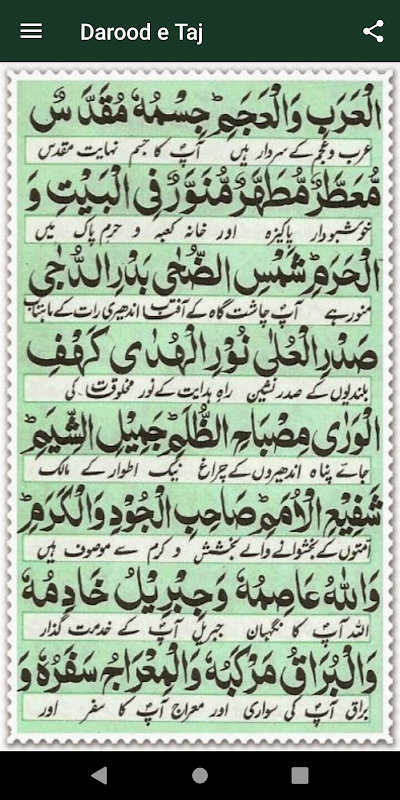 Darood e Taj
الْعَرَبِ وَالْعَجَمِ ؕ جِسْمُهٗ مُقَدَّسٌ
عرب وعجم کے سردار ہیں آپؐ کا جسم نہایت مقدس
مُّعَطَّرٌ مُّطَهَّرٌ مُّنَوَّرٌ فِی الْبَیْتِ وَ
خوشبودار پاکیزہ اور خانہ کعبہ و حرم پاک میں
الْحَرَمِ ؕ شَمْسِ الضُّحٰی بَدْرِ الدُّجٰی
منور ہے آپؐ چاشت گاہ کے آفتاب اندھیری رات کے ماہتاب
صَدْرِ الْعُلٰی نُوْرِ الْهُدٰی کَهْفِ
بلندیوں کے صدر نشین راہ ہدایت کے نور مخلوقات کی
الْوَرٰی مِصْبَاحِ الظُّلَمِ ؕ جَمِیْلِ الشِّیَمِ ؕ
جائے پناہ اندھیروں کے چراغ نیک اطوار کے مالک
شَفِیْعِ الْاُمَمِ ؕ صَاحِبِ الْجُوْدِ وَالْکَرَمِ ؕ
امتوں کے بخشوانے والے بخشش و کرم سے موصوف ہیں
وَاللّٰهُ عَاصِمُهٗ وَجِبْرِیْلُ خَادِمُهٗ
اللہ آپؐ کا نگہبان جبریل آپؐ کے خدمت گذار
وَالْبُرَاقُ مَرْکَبُهٗ وَالْمِعْرَاجُ سَفَرُهٗ وَ
براق آپؐ کی سواری اور معراج آپؐ کا سفر اور